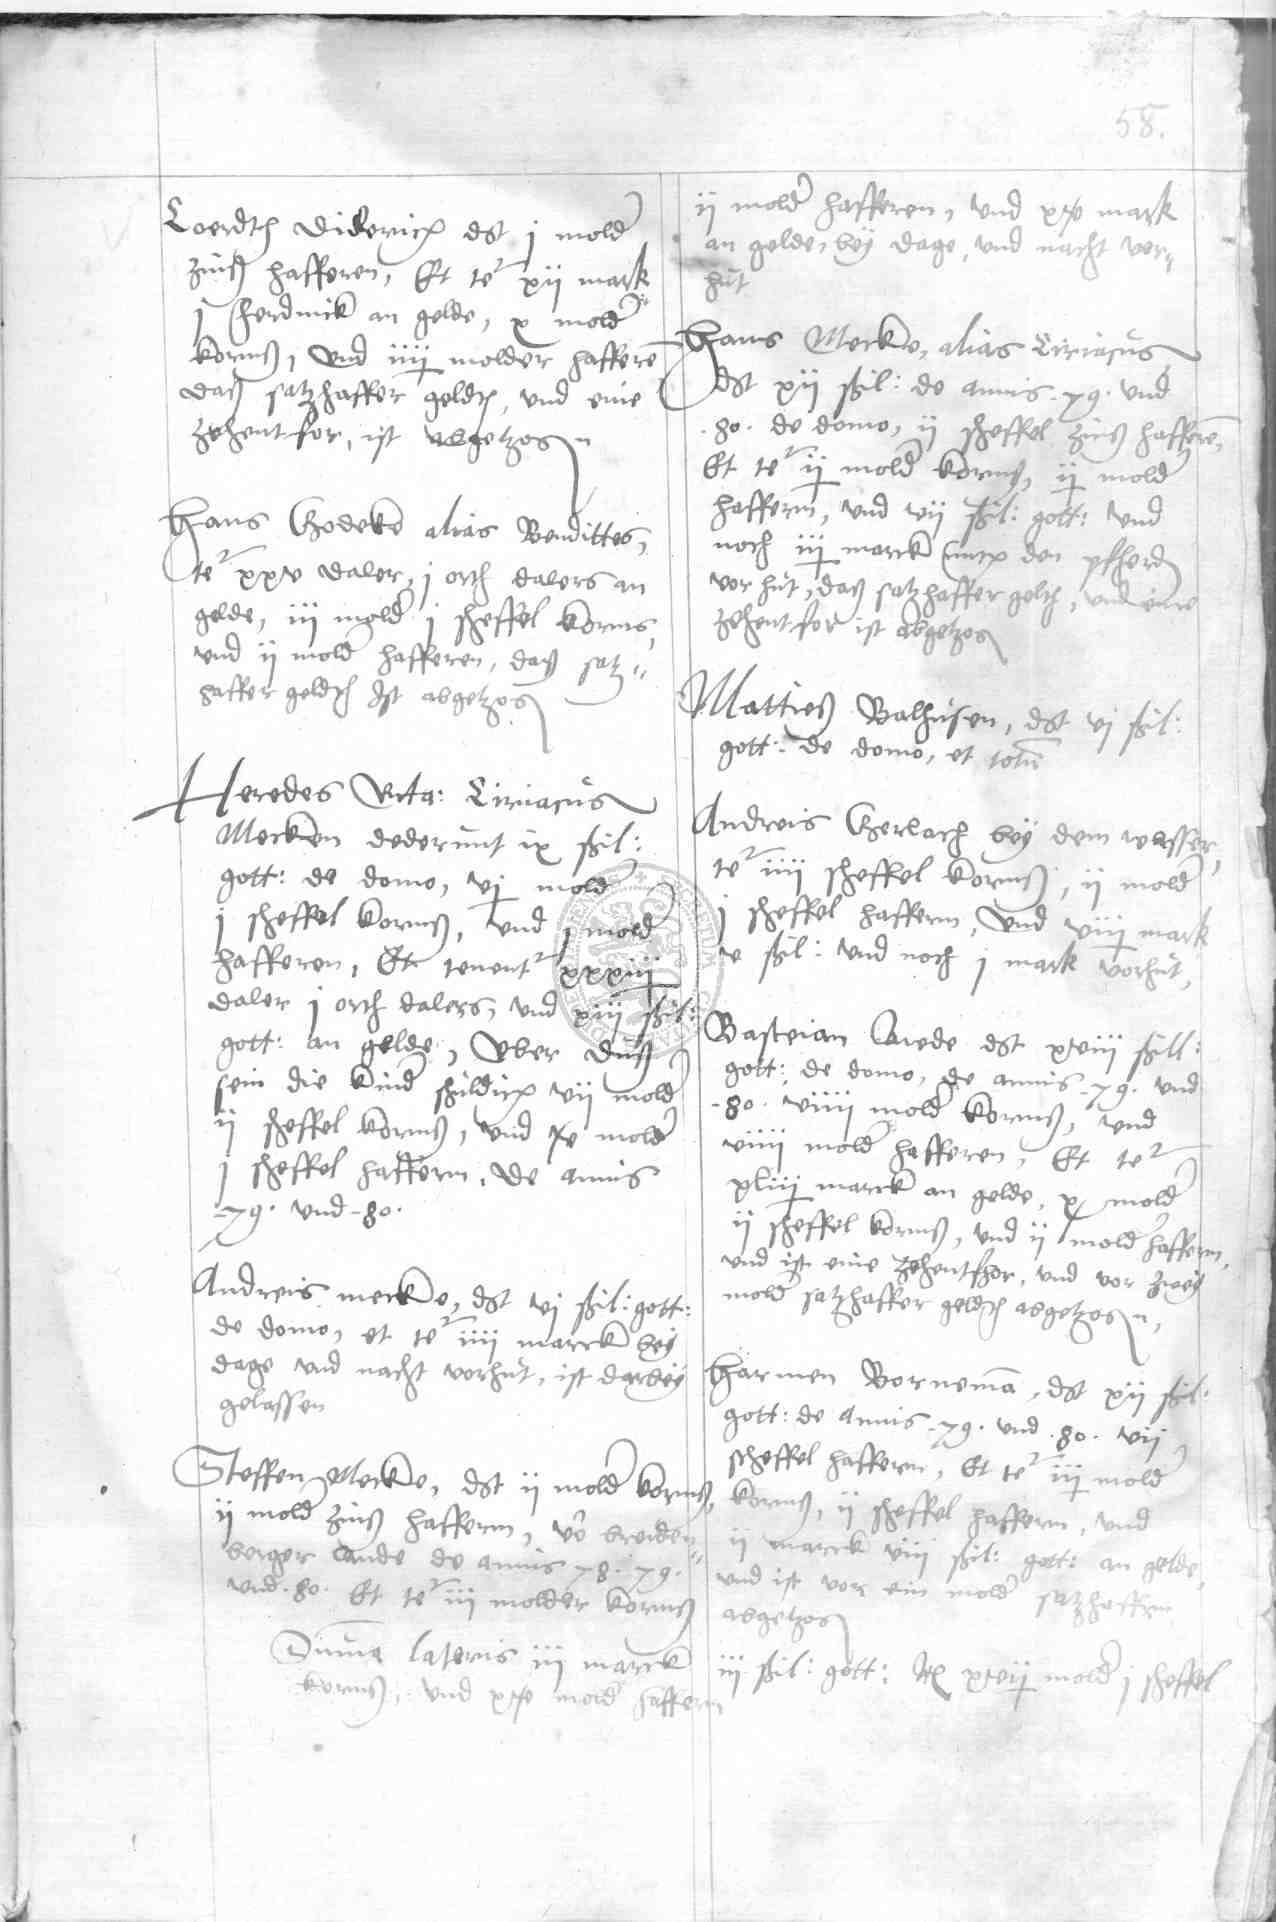 58.
Coerdth Diderich dt j mold
zinß hafferen, Et te^r xij mark
j ferdinck an gelde, x mold
kornß, und iiij molder haffere
daß satzhaffer geldth, und eine
zehentfor, ist abgetzog
Hans Godeke alias Bendittes,
te^r xxv daler, j orth dalers an
gelde, iij mold j scheffel korns,
und ij mold hafferen, daß satz"
haffer geldth Ist abgetzog
Heredes Ciriacus
Mecken dederunt ix ßil:
gott: de domo, vj mold
j scheffel kornß, und j mold
hafferen, Et tenent^r xxxiij
daler j orth dalers, und xiij ßil:
gott: an gelde, Vber duß
sein die kind schuldich vij mold
ij scheffel kornß, und xv mold
j scheffel haffern, de annis
-79. und -80.
Andreis mecke, dt vj ßil: gott:
de domo, et te^r iiij marck bey
dage und nacht vorhut, ist darbey
gelassen
Steffen Mecke, dt ij mold kornß,
ij mold zinß hafferen, breiden"
berger ende de annis 78. 79.
und .80. Et te^r iij molder kornß
Summa lateris iij marck
kornß, und xv mold hafferen
ij mold hafferen, und xv mark
an gelde, bey dage, und nacht ver"
hut
Hans Mecke, alias Ciriacus
dt xij ßil: de annis .79. und
.80. de domo, ij scheffel zinß hafferen,
Et te^r ij mold kornß, ij mold
hafferen, und vij ßil: gott: und
noch iij marck den pfherd
vorhut, daß satzhaffer gelth, und eine
zehentfor ist abgetzog
Matties Balhusen, dt vj ßil:
gott: de domo, et totum
Andreis Gerlach bey dem wasser,
te^r iiij scheffel kornß, ij mold
j scheffel hafferen, Und viij mark
v ßil: und noch j mark vorhut,
Bastian dt xviij ßill:
gott: de domo, de annis -79. und
-80. viiij mold kornß, und
viiij mold hafferen, Et te^r
xliij marck an gelde, x mold
ij scheffel kornß, und ij mold hafferen,
und ist eine zehentfhor, und vor zwey
mold satzhaffer geldth abgetzog
Harmen Bornema, dt xij ßil:
gott: de annis .79. und .80. vij
scheffel hafferen, Et te^r iij mold
kornß, ij scheffel hafferen, und
ij marck viij ßil: gott: an gelde,
und ist vor ein mold satzhaffern
abgetzog
iij ßil: gott: xvij mold j scheffel